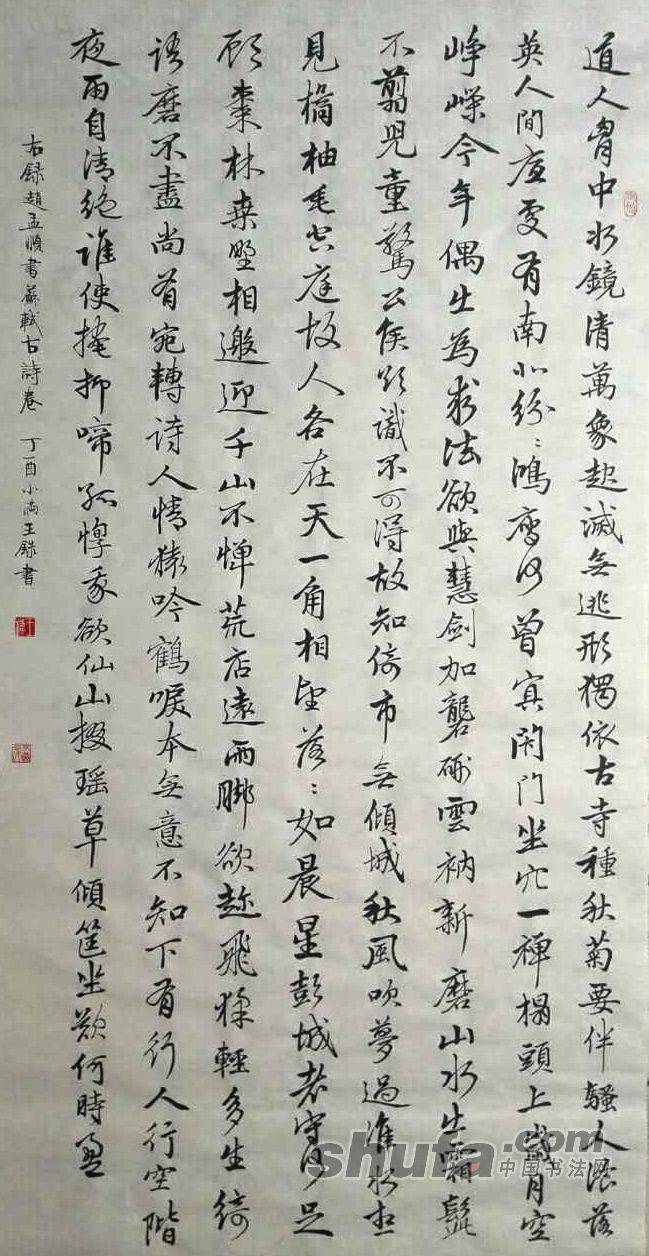 道人胷中水鏡清萬象起滅無逃形獨依古寺種秋菊要伴騷人湌落
英人間底處有南北紛〻鴻鴈何曾冥閉門坐穴一禪榻頭上歲月空
崢嶸今年偶出為求法欲與慧劍加礱硎雲衲新磨山水出霜髭
不翦兒童驚公侯欲識不可得故知倚市無傾城秋風吹夢過淮水想
見橘柚垂空庭故人各在天一角相望落〻如晨星彭城老守何足
顧棗林桑野相邀迎千山不憚荒店遠兩脚欲趁飛猱輕多生綺
語磨不盡尚有宛轉詩人情猿吟鶴唳本無意不知下有行人行空階
夜雨自清絶誰使掩抑啼孤惸我欲仙山掇瑶草傾筐坐歎何時盈
右録趙孟順書蘇軾古詩卷 丁酉小滿王録書
shufa.com
中国书法网